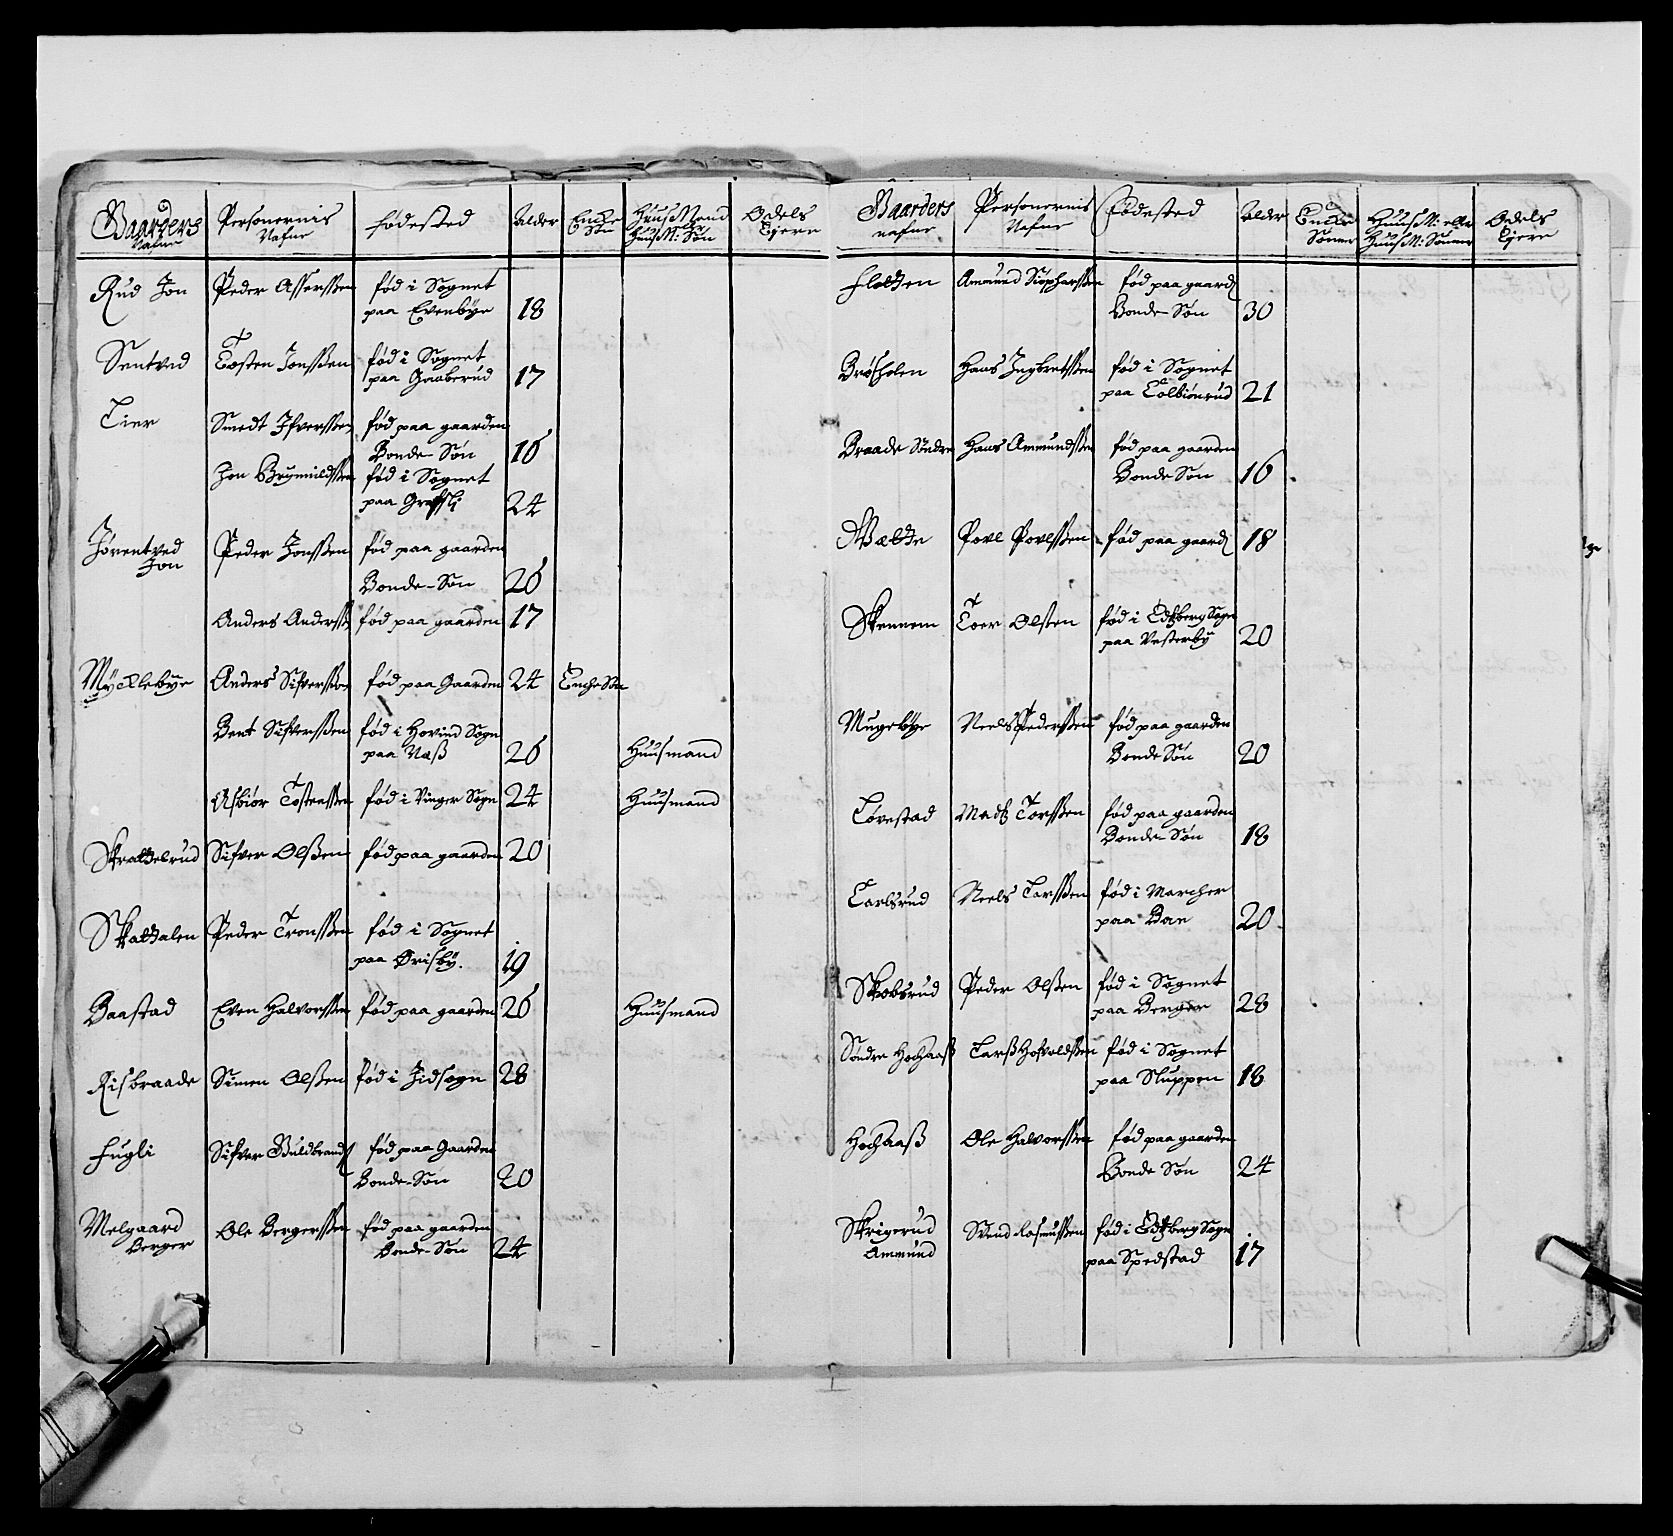 Gaarders Nafne | Personernis Nafne | Fødested | Alder | Encke Søn | HuusMend eller HuusM: Søn | Odels Ejere
Rud Jon | Peder Asserssen | fød i Sognet
paa Evenbye | 18
Sentved | Tosten Jonssen | fød i Sognet
paa Gaaberud | 17
Lier | Smedt Ifverssen | fød paa gaarden
Bonde-Søn | 16
Jon Brynnildssen | fød i Sognet
paa Grefsli | 24
Jørentved | Peder Jonssen | fød paa gaarden
Jon
Bonde-Søn | 26
Anders Anderss | fød paa gaarden | 17
Mycklebye | Anders Sifverssen | fød paa Gaarden | 24 | Encke Søn
Bent Sifverssen | fød i Hovind Sogn
paa Næss | 26 | Huusmand
Asbiør Tostenssen | fød i Vinger Sogn | 24 | Huusmand
Skrattelrud | Sifver Olssen | fød paa gaarden | 20
Skattalen | Peder Tronssen | fød i Sognet
paa Ørisby. | 19
Baastad | Even Halvorssen | fød paa gaarden | 26 | Huusmand
Risbraade | Simen Olssen | fød i Idsogn | 28
Fugli | Sifver Guldbrands | fød paa Gaarden
Bonde-Søn | 20
Melgaard | Ole Bergerssen | fød paa gaarden
Berger | Bonde-Søn | 24
Gaarders nafne | Personernis Nafne | Fødested | Alder | Encke Sønner | HuusM: eller HuusM: Sønner | Odels Ejere
Flotten | Ammund Siopharssen | fød paa gaard
Bonde-Søn | 30
Brøsholen | Hans Ingbretssen | fød i Sognet
paa Colbiønrud | 21
Braade Søndre | Hans Ammundssen | fød paa gaarden
Bonde Søn | 16
Wætte | Povl Povlssen | fød paa gaard | 18
Skennem | Toer Olsten | fød i Edtzberg Sogn
paa Vesterby | 20
Mugebye | Neels Pederssen | fød paa gaarden
Bonde Søn | 20
Løvestad | Madtz Torssen | fød paa gaarden
Bonde-Søn | 18
Carlsrud | Neels Larssen | fød i Marcher
paa Bøe | 20
Skobsrud | Peder Olssen | fød i Sognet
paa Berger | 28
Søndre Hochaass | Larss Hofvoldssen | fød i Sognet
paa Sluppen | 18
Hochaass | Ole Halvorssen | fød paa gaarden
Bonde Søn | 24
Skrigerud | Svend Rasmussen | fød i Edtzberg Sogn
Ammund | paa Spedstad | 17